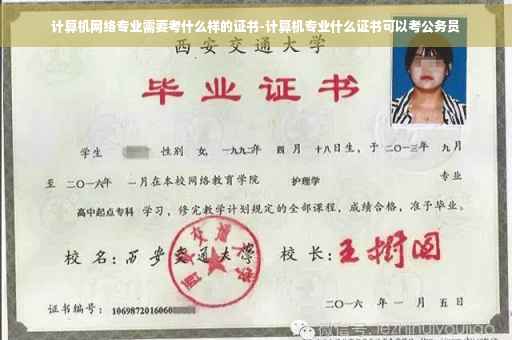 计算机网络专业需要考什么样的证书-计算机专业什么证书可以考公务员
西安交通大学
毕业证书
学生 性别 女, 一九九二年 四月 十八日生, 于 二〇一三年 九月
至 二〇一六年 一月在本校网络教育学院 护理学 专业
高中起点专科 学习, 修完教学计划规定的全部课程, 成绩合格, 准予毕业。
校名: 西安交通大学 校长: 王树国
西安交通大学
证书编号: 1069872016060
二〇一六年 一月 五日
微信号: jiezhihuiyoujiao